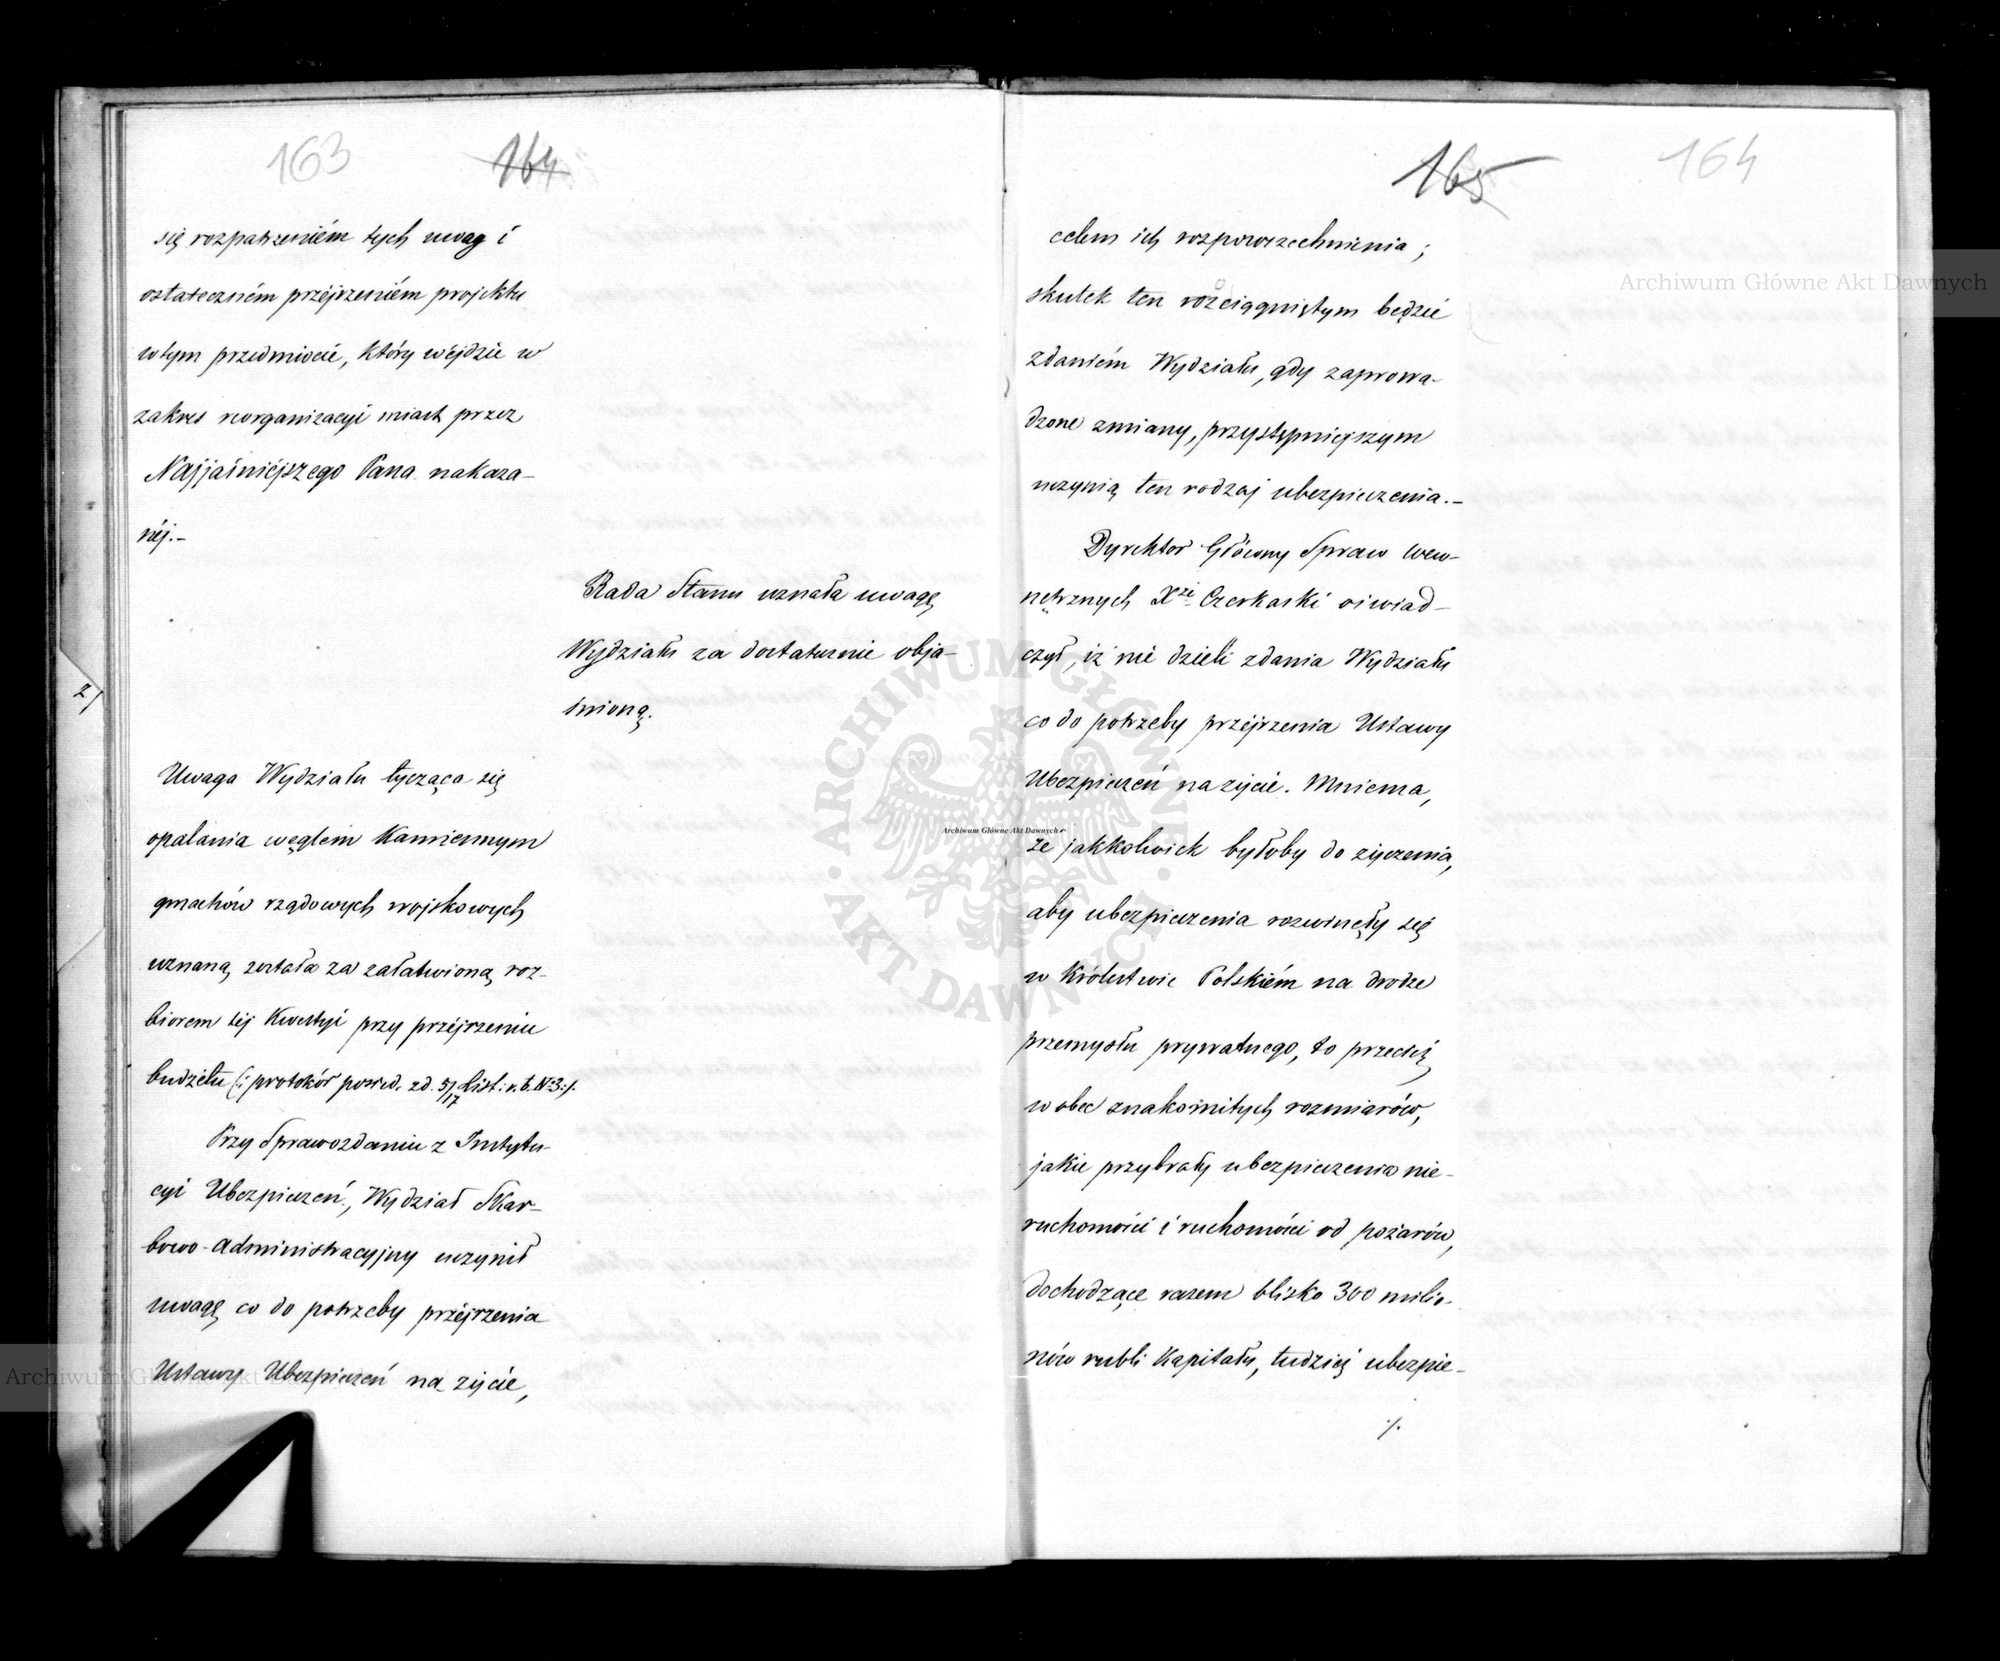 163
164
się rozpatrzeniém tych uwag i
ostateczném przéjrzeniém projektu
w tym przedmiocie, który wéjdzie w
zakres reorganizacyi miast przez
Najjaśniéjszego Pana nakaza-
néj.-
Rada Stanu uznała uwagę
Wydziału za dostatecznie obja-
śnioną.
2/
Uwaga Wydziału tycząca się
opalania węglem kamiennym
gmachów rządowych wojskowych
uznaną została za załatwioną roz-
biorem téj kwestyi przy przéjrzeniu
budżetu (: protokół posied. zd. 5/17 List: r. b. N: 3:/.
Przy Sprawozdaniu z Instytu-
cyi Ubezpieczeń, Wydział Skar-
bowo-Administracyjny uczynił
uwagę co do potrzeby przéjrzenia
Ustawy Ubezpieczeń na życie,
165
164
celem ich rozpowszechnienia;
skutek ten rozciągniętym będzie
zdaniém Wydziału, gdy zaprowa-
dzone zmiany, przystępniejszym
uczynią ten rodzaj ubezpieczenia.-
Dyrektor Główny Spraw Wew-
nętrznych Xże Czerkaski oświad-
czył, iż nie dzieli zdania Wydziału
co do potrzeby przéjrzenia Ustawy
Ubezpieczeń na życie. Mniema,
że jakkolwiek byłoby do życzenia,
aby ubezpieczenia rozwinęły się
w Królestwie Polskiém na drodze
przemysłu prywatnego, to przecież
wobec znakomitych rozmiarów,
jakie przybrały ubezpieczenia nie-
ruchomości i ruchomości od pożarów,
dochodzące razem blisko 300 milio-
nów rubli kapitału, tudzież ubezpie-
./.
Archiwum Główne Akt Dawnych
Archiwum Główne Akt Dawnych
ARCHIWUM GŁÓWNE AKT DAWNYCH
Archiwum Główne Akt Dawnych